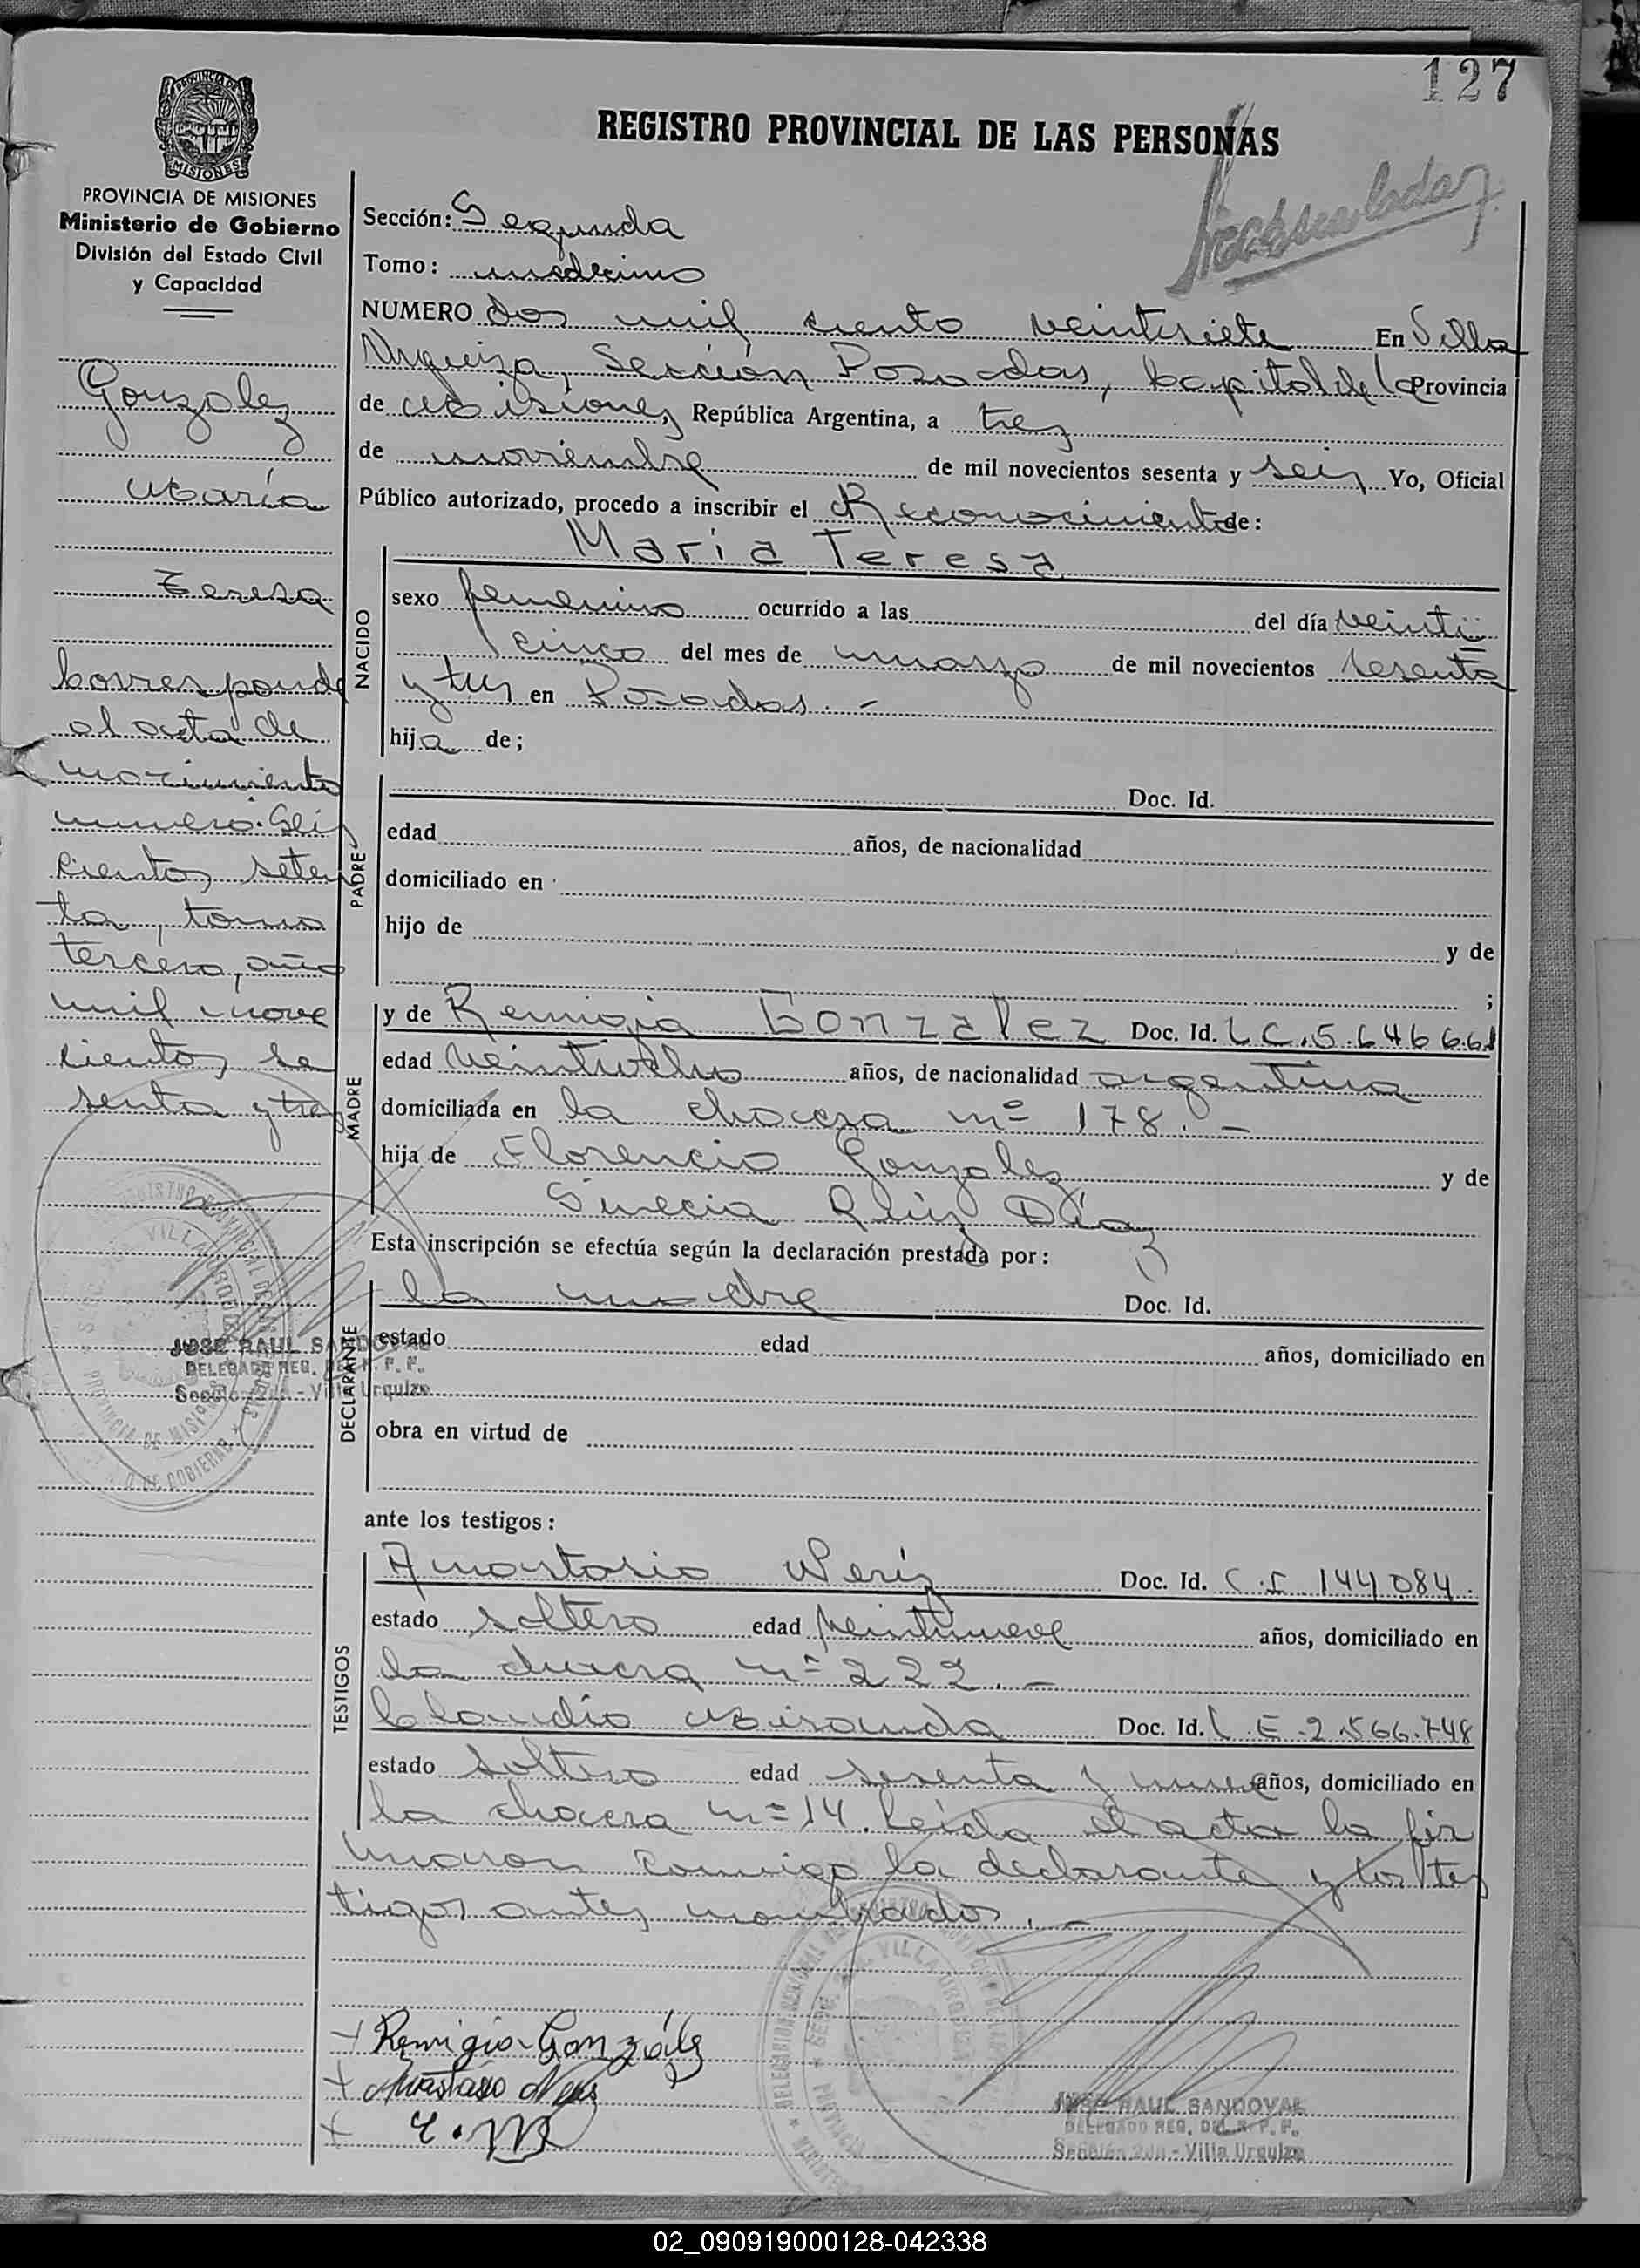 127
REGISTRO PROVINCIAL DE LAS PERSONAS
PROVINCIA DE MISIONES
Ministerio de Gobierno
División del Estado Civil
y Capacidad
Gonzalez
Maria
Teresa
Corresponde
al acta de
nacimiento
numero Seis
cientos seten
ta, tomo
tercero, año
mil nove
cientos se
senta y tres
JOSE RAUL SANDOVAL
DELEGADO REG. DEL R. P. P.
Sección 2da - Villa Urquiza
Sección: Segunda
Tomo: undecimo
NUMERO dos mil ciento veintisiete En Villa
Urquiza, Sección Posadas, Capital de la Provincia
de Misiones, República Argentina, a tres
de noviembre de mil novecientos sesenta y seis Yo, Oficial
Público autorizado, procedo a inscribir el Reconocimiento de:
NACIDO
María Teresa
sexo femenino ocurrido a las del día veinti
cinco del mes de marzo de mil novecientos sesenta
y tres en Posadas. -
hija de;
PADRE
Doc. Id.
edad años, de nacionalidad
domiciliado en
hijo de y de
;
MADRE
y de Remigia Gonzalez Doc. Id. L C. 5.646.661
edad veintiocho años, de nacionalidad argentina
domiciliada en la chacra nº 178. -
hija de Florencio Gonzalez y de
Sinecia Ruiz Diaz
Esta inscripción se efectúa según la declaración prestada por:
DECLARANTE
la madre Doc. Id.
estado edad años, domiciliado en
obra en virtud de
ante los testigos:
TESTIGOS
Anastasio Neris Doc. Id. C. I 144.084.
estado soltero edad veintinueve años, domiciliado en
la chacra nº 222. -
Claudio Miranda Doc. Id. L. E. 2.566.748
estado soltero edad sesenta y nueve años, domiciliado en
la chacra nº 14. Leída el acta la fir
maron conmigo la declarante y los tes
tigos antes nombrados. -
Remigia Gonzáles
Anastasio Neris
JOSE RAUL SANDOVAL
DELEGADO REG. DEL R. P. P.
Sección 2da - Villa Urquiza
02_090919000128-042338